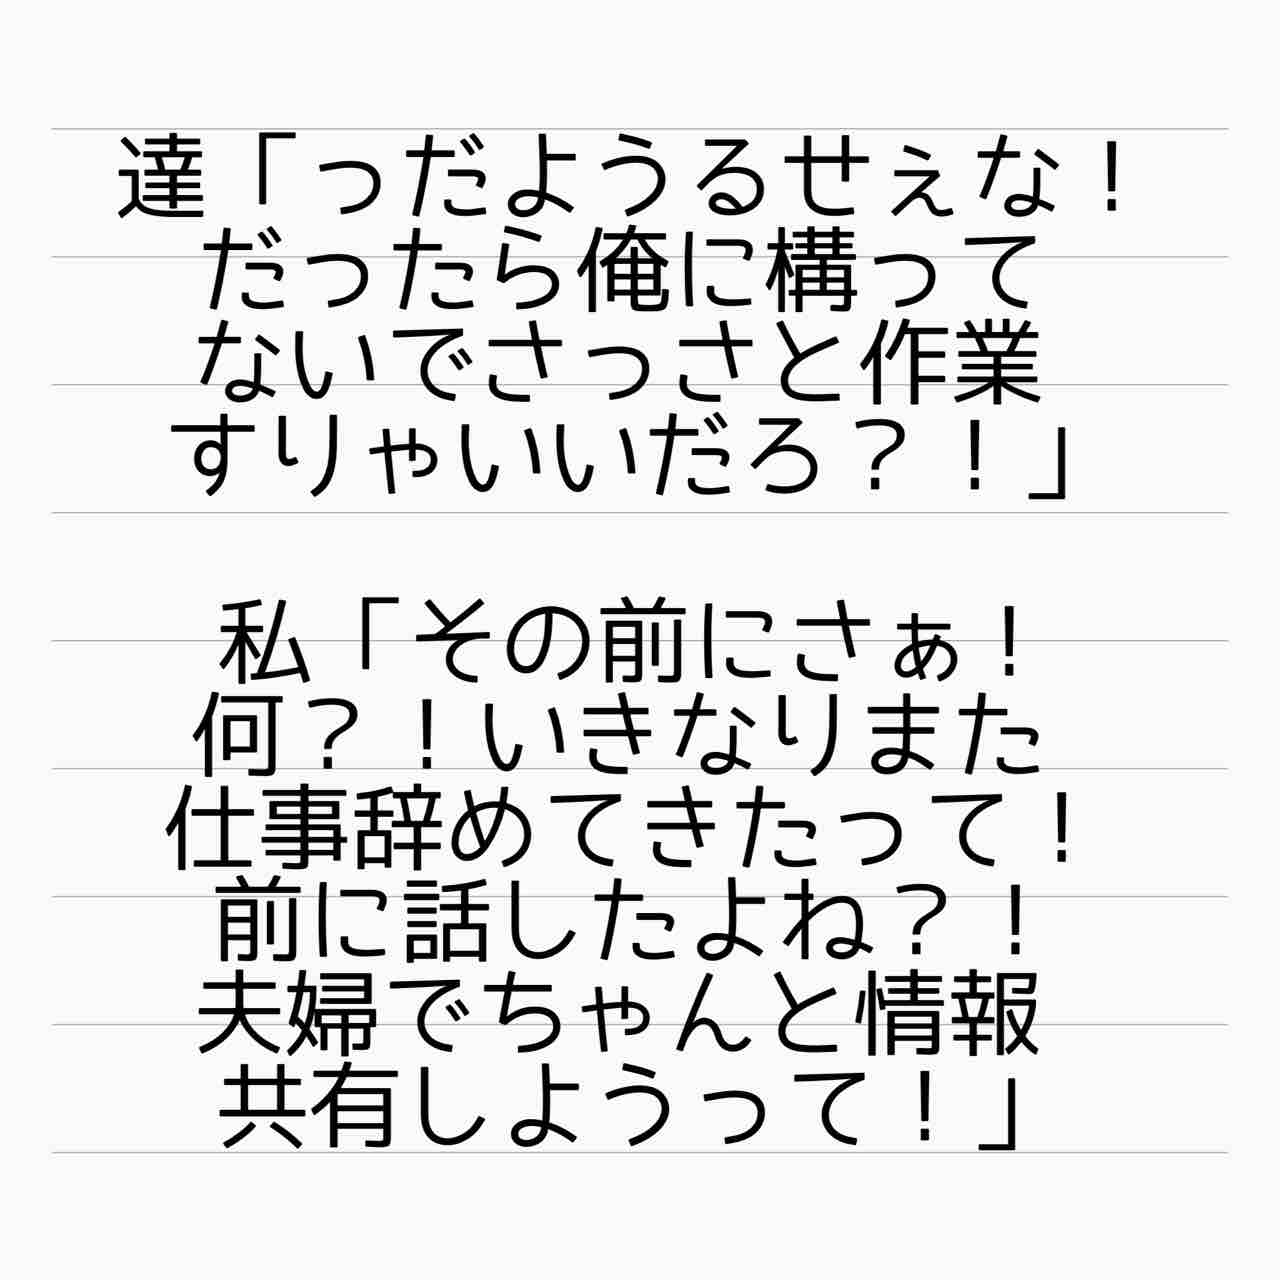 達「っだようるせぇな！
だったら俺に構って
ないでさっさと作業
すりゃいいだろ？！」
私「その前にさぁ！
何？！いきなりまた
仕事辞めてきたって！
前に話したよね？！
夫婦でちゃんと情報
共有しようって！」